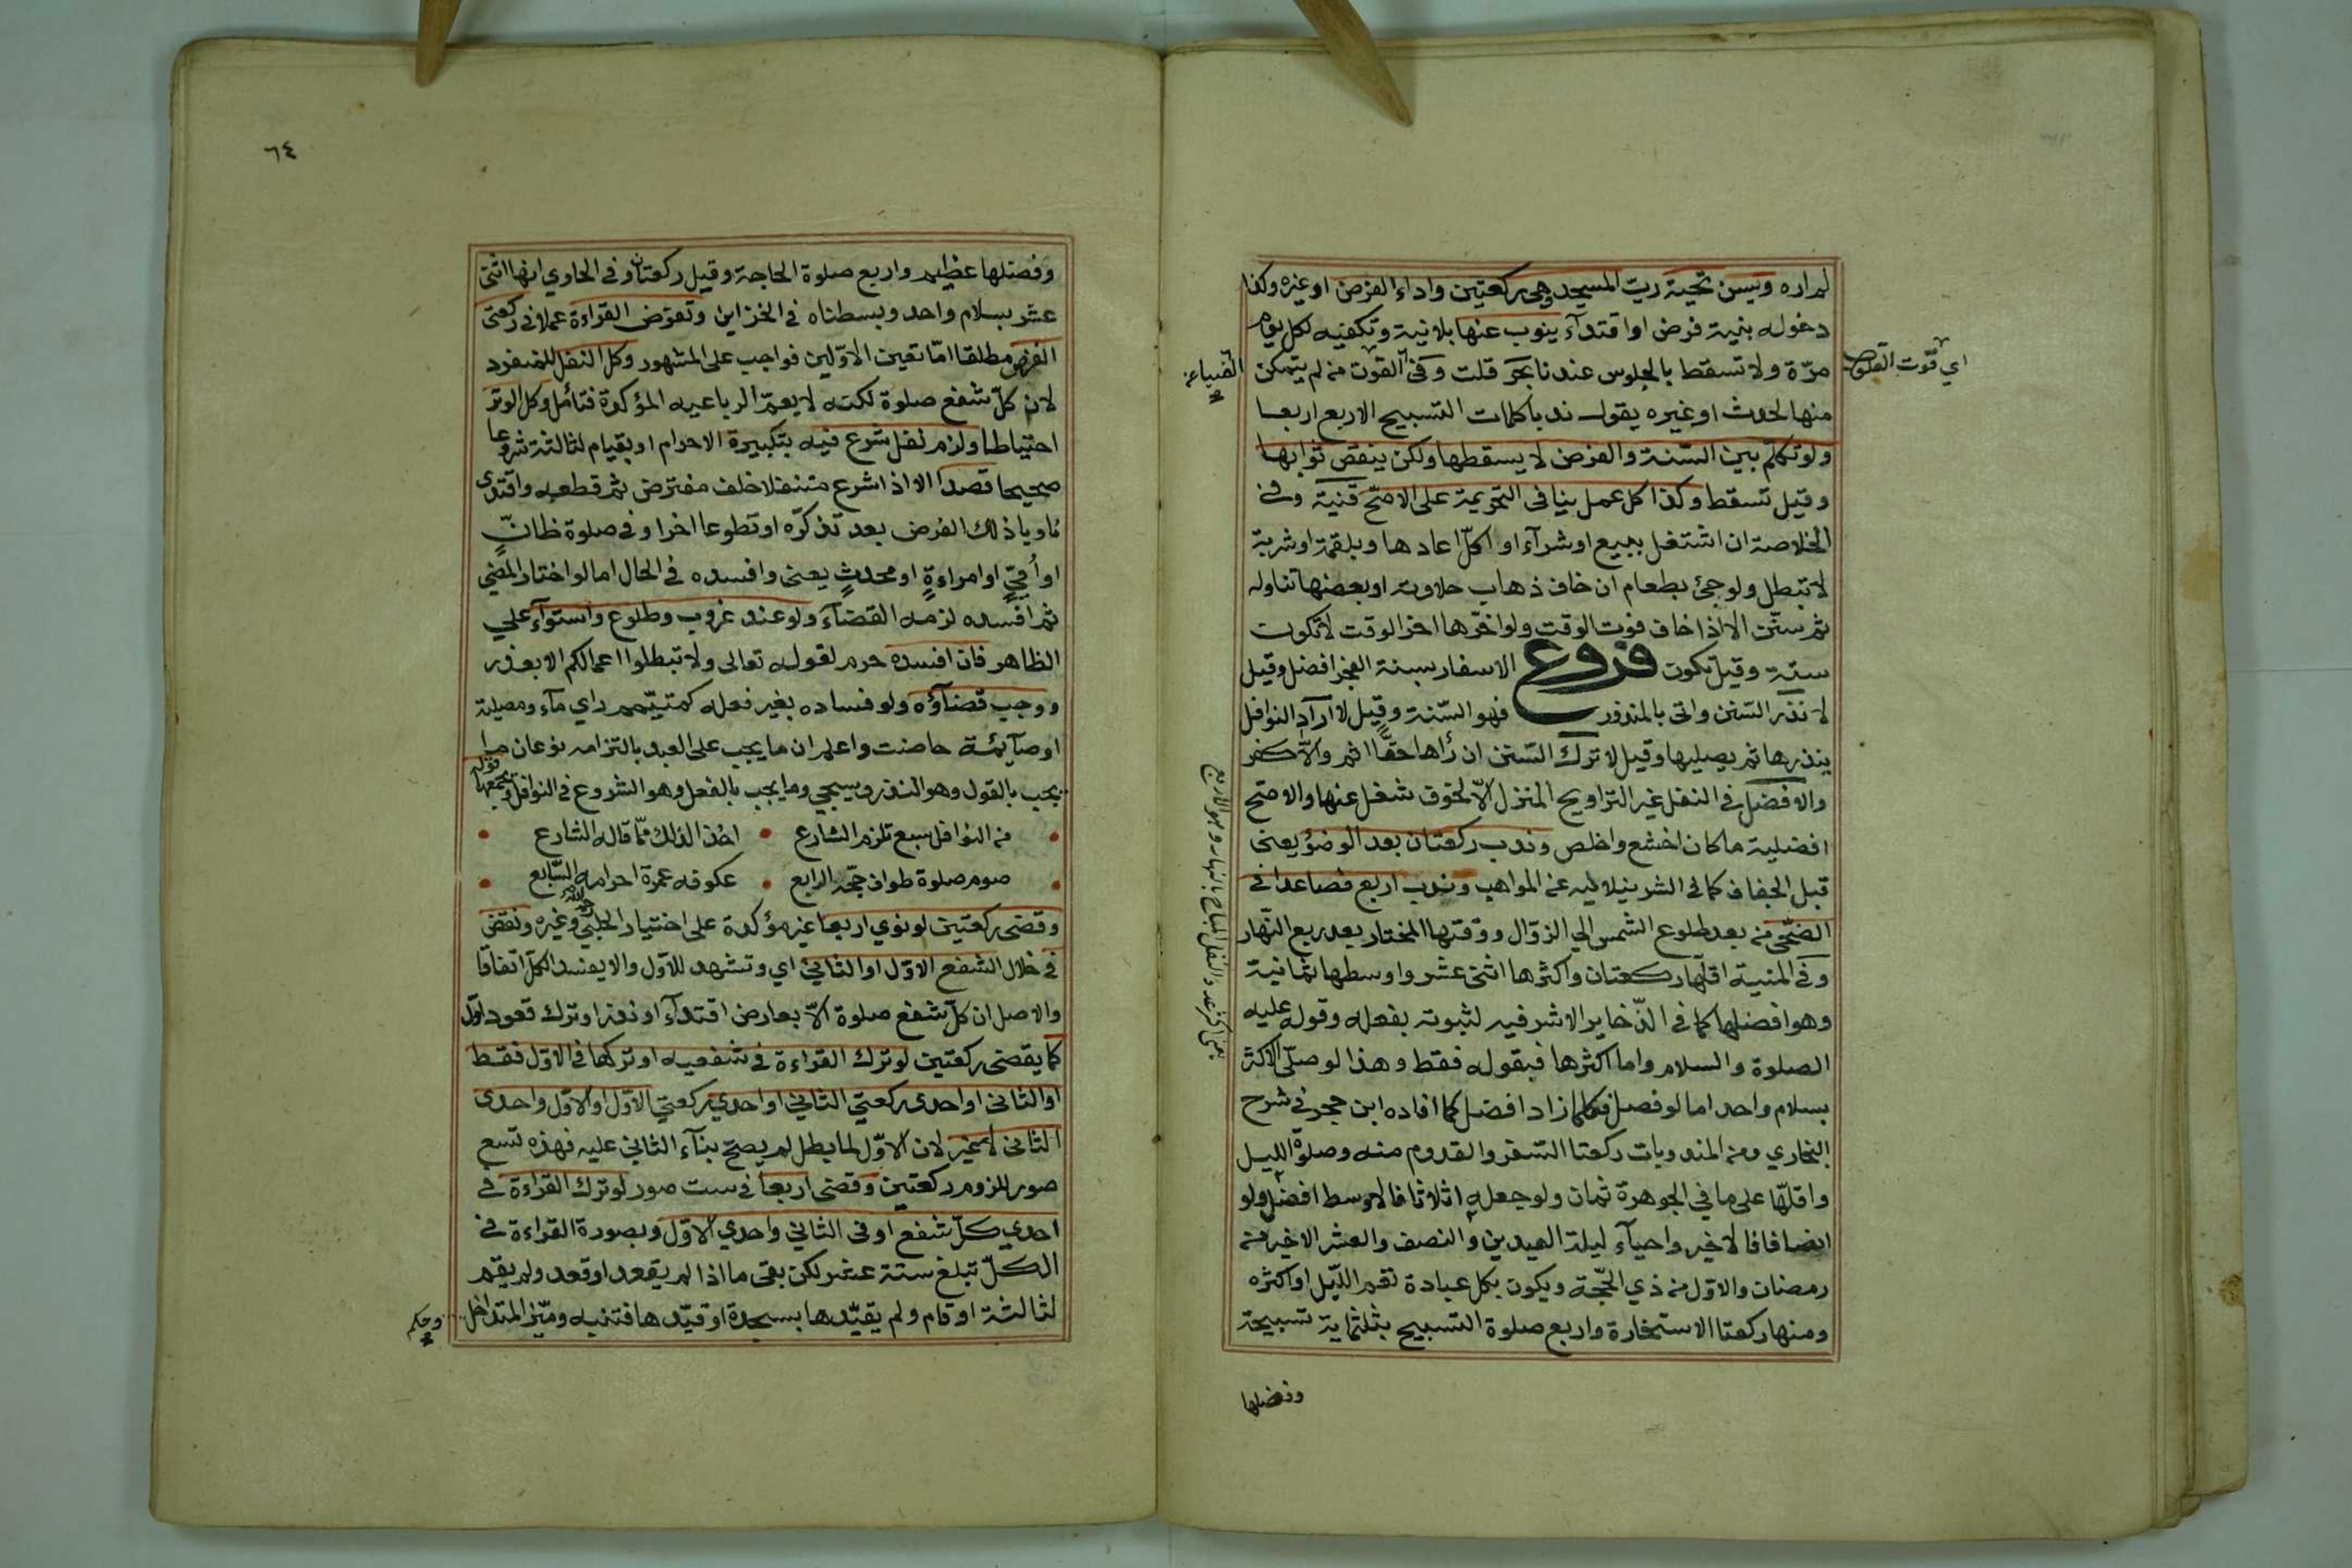 لم اره ويسن تحية رب المسجد وهى ركعتين واداء الفرض اوغيره وكذا
دخوله بنية فرض او اقتدآء ينوب عنها بلا نية وتكفيه لكل يوم
مرّة ولا تسقط بالجلوس عندنا بحر قلت وفى القوت من لم يتمكن
اي قوت القلوب
الضياء عن
منها لحدث او غيره يقول ندبا كلمات التسبيح الاربع اربعا
ولو تكلم بين السّنة والفرض لا يسقطها ولكن ينقص ثوابها
وقيل تسقط وكذا كل عمل ينافى التحريمة على الاصحّ قنية وفى
الخلاصة ان اشتغل ببيع او شرآء او اكل اعادها وبلقمة او شربة
لا تبطل ولو جئ بطعام ان خاف ذهاب حلاوته او بعضها تناوله
ثم سنّن الا اذا خاف فوت الوقت ولو اخّرها اخر الوقت لا تكون
سنة وقيل تكون فروع الاسفار بسنة الفجر افضل وقيل
لا نذر السّنن واتى بالمنذور فهو السّنة وقيل لا اراد النوافل
ينذرها ثم يصليها وقيل لا ترك السّنن ان رأها حقّا اثم والا كفر
والافضل فى النفل غير التراويح المنزل الّا لخوف شغل عنها والاصح
افضلية ما كان اخشع واخلص وندب ركعتان بعد الوضؤ يعنى
قبل الجفاف كما فى الشرنبلاليه عن المواهب وندب اربع فصاعدا فى
الضّحى من بعد طلوع الشمس الي الزوال ووقتها المختار بعد ربع النّهار
وفى المنية اقلّها ركعتان واكثرها اثنى عشر واوسطها ثمانية
وهو افضلها كما فى الذّخاير الاشرفيه لثبوته بفعله وقوله عليه
الصلوة والسلام واما اكثرها فبقوله فقط وهذا لو صلّى الاكثر
بسلام واحد اما لو فصل فكلما زاد افضل كما افاده ابن حجر فى شرح
البخاري ومن المندوبات ركعتا السفر والقدوم منه وصلوة الليل
واقلّها على ما في الجوهرة ثمان ولو جعله اثلاثا فالاوسط افضل ولو
انصافا فالاخير واحيآء ليلة العيدين والنصف والعشر الاخير من
رمضان والاوّل من ذي الحجّة ويكون بكل عبادة تعم اللّيل او اكثره
ومنها ركعتا الاستخارة واربع صلوة التسبيح بثلثماية تسبيحة
وفضلها
٦٤
وفضلها عظيم واربع صلوة الحاجة وقيل ركعتان وفى الحاوي انها اثنى
عشر بسلام واحد وبسطناه فى الخزاين وتفرض القراءة عملا فى ركعتى
الفرض مطلقا امّا تعين الاوّلين فواجب على المشهور وكل النفل للمنفرد
لان كلّ شفع صلوة لكنه لا يعمّ الرباعيه المؤكدة فتأمل وكل الوتر
احتياطا ولزم نفل شرع فيه بتكبيرة الاحرام او بقيام لثالثة شروعا
صحيحا قصدا الا اذا شرع متنفلا خلف مفترض ثم قطعه واقتدى
ناويا ذلك الفرض بعد تذكّره او تطوعا اخر او فى صلوة ظانّ
او أميّ او امراءة او محدث يعنى وافسده فى الحال اما لو اختار المضي
ثم افسده لزمه القضآء ولو عند غروب وطلوع واستوآء علي
الظاهر فان افسده حرم لقوله تعالى ولا تبطلوا اعمالكم الا بعذر
ووجب قضآؤه ولو فساده بغير فعله كمتيّمم راي مآء ومصلية
او صآيئمة حاضت واعلم ان ما يجب على العبد بالتزامه نوعان ما
يجب بالقول وهو النذر وسيجي وما يجب بالفعل وهو الشروع فى النوافل ويجمعها قوله
من النوافل سبع تلزم الشارع • اخذا لذلك ممّا قاله الشارع
صوم صلوة طواف حجّه الرابع • عكوفه عمرة احرامه السّابع
وقضى ركعتين لو نوي اربعا غير مؤكدة على اختيار الحلبي وغيره ونقض
فى خلال الشفع الاوّل او الثاني اي وتشهد للاوّل والا يفسد الكلّ اتفاقا
والاصل ان كلّ شفع صلوة الّا بعارض اقتدآء او نذر او ترك قعود اوّل
كما يقضى ركعتين لو ترك القراءة فى شفعيه او تركها فى الاوّل فقط
او الثانى او احدى ركعتي الثاني او احدي ركعتي الاوّل او الاوّل واحدى
الثانى لا غير لان الاوّل لما بطل لم يصحّ بنآء الثاني عليه فهذه تسع
صور للزوم ركعتين وقضى اربعا فى ست صور لو ترك القراءة فى
احدي كلّ شفع او فى الثاني واحدي الاوّل وبصورة القراءة فى
الكلّ تبلغ ستة عشر لكن بقى ما اذا لم يقعد او قعد ولم يقم
لثالثة او قام ولم يقيّدها بسجدة او قيّدها فتنبه وميّز المتداخل
وحكم